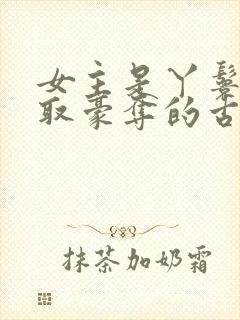 女主是丫鬟
取豪夺的古
抹茶加奶霜